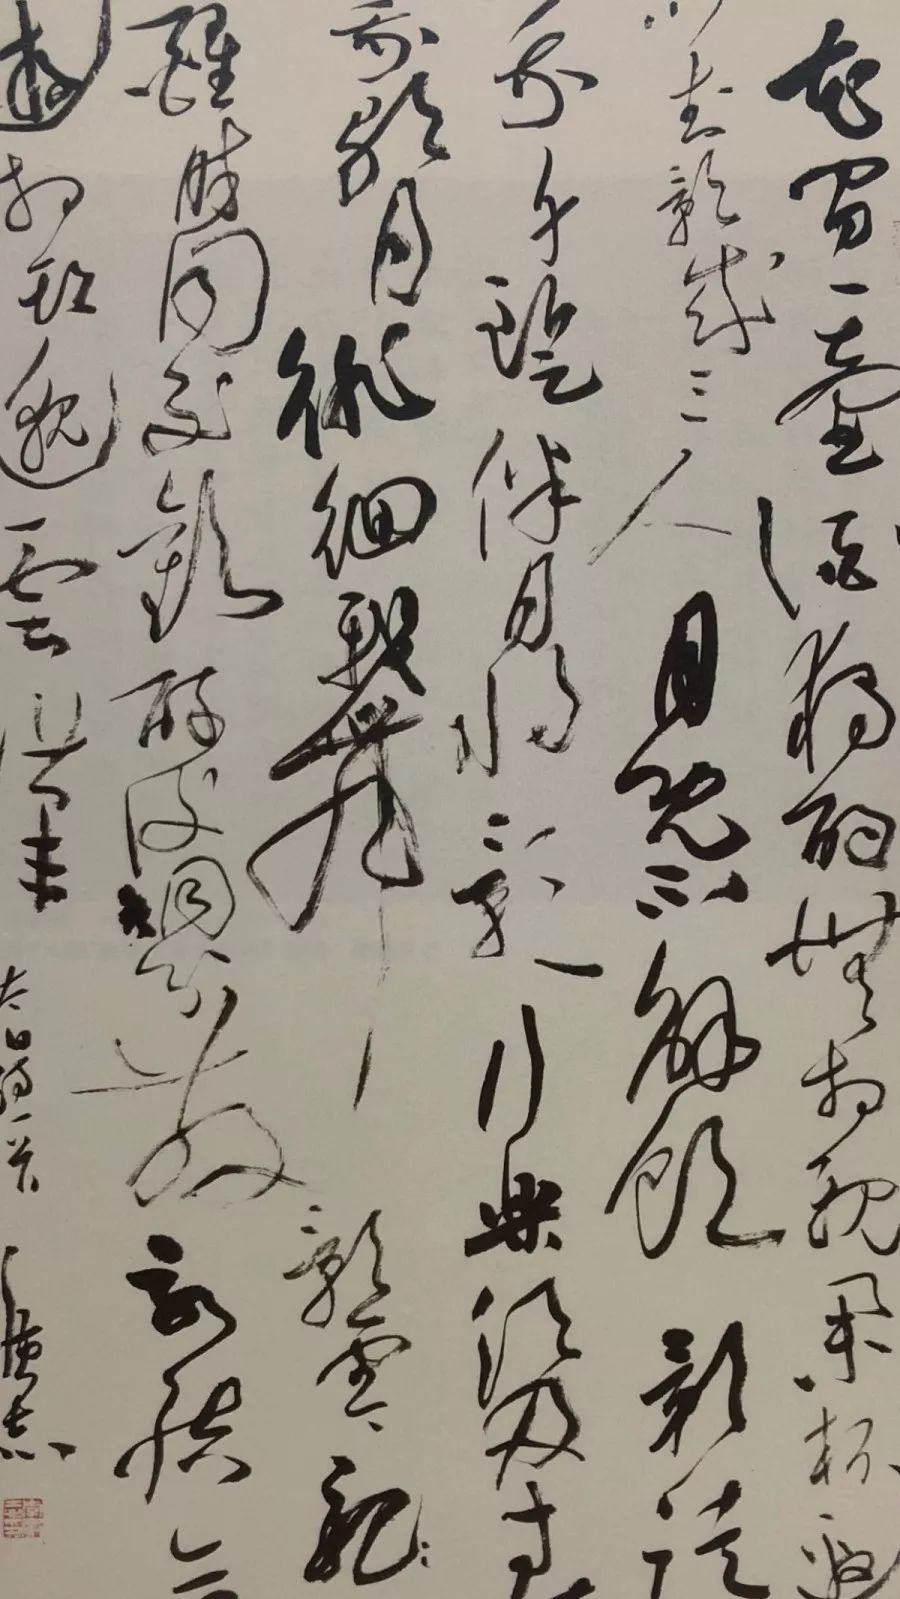 花間一壺酒獨酌無相親舉杯邀
對影成三人月既不解飲影徒
我身暫伴月將影行樂須及春
我歌月徘徊我舞影零亂
醒時同交歡醉後分散永結無
遊相期邈雲漢
太白詩一首